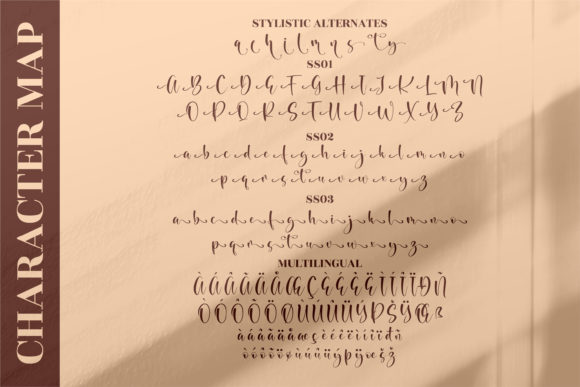 CHARACTER MAP
STYLISTIC ALTERNATES
a c h i l m n s ty
SS01
A B C D E F G H I J K L M N
O P Q R S T U V W X Y Z
SS02
a b c d e f g h i j k l m n o
p q r s t u v w x y z
SS03
a b c d e f g h i j k l m n o
p q r s t u v w x y z
MULTILINGUAL
À Á Â Ã Ä Å Æ Ç È É Ê Ë Ì Í Î Ï Ð Ñ
Ò Ó Ô Õ Ö Ø Ù Ú Û Ü Ý Þ Š Ÿ Œ ß
à á â ã ä å æ ç è é ê ë ì í î ï đ ñ
ò ó ô õ ö ø ù ú û ü ý þ ÿ œ š ž